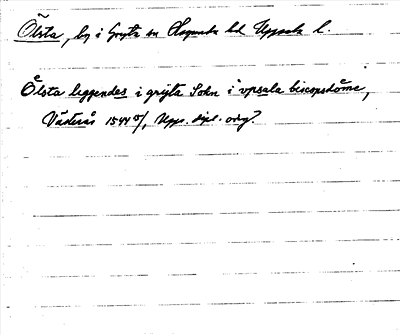 Ölsta, by i Gryta sn Hagunda hd Uppsala l.
Ölsta liggendes i gryta Sokn i vpsala biscopsdöme,
Västerås 1544 5/, Upps. dipl. orig.